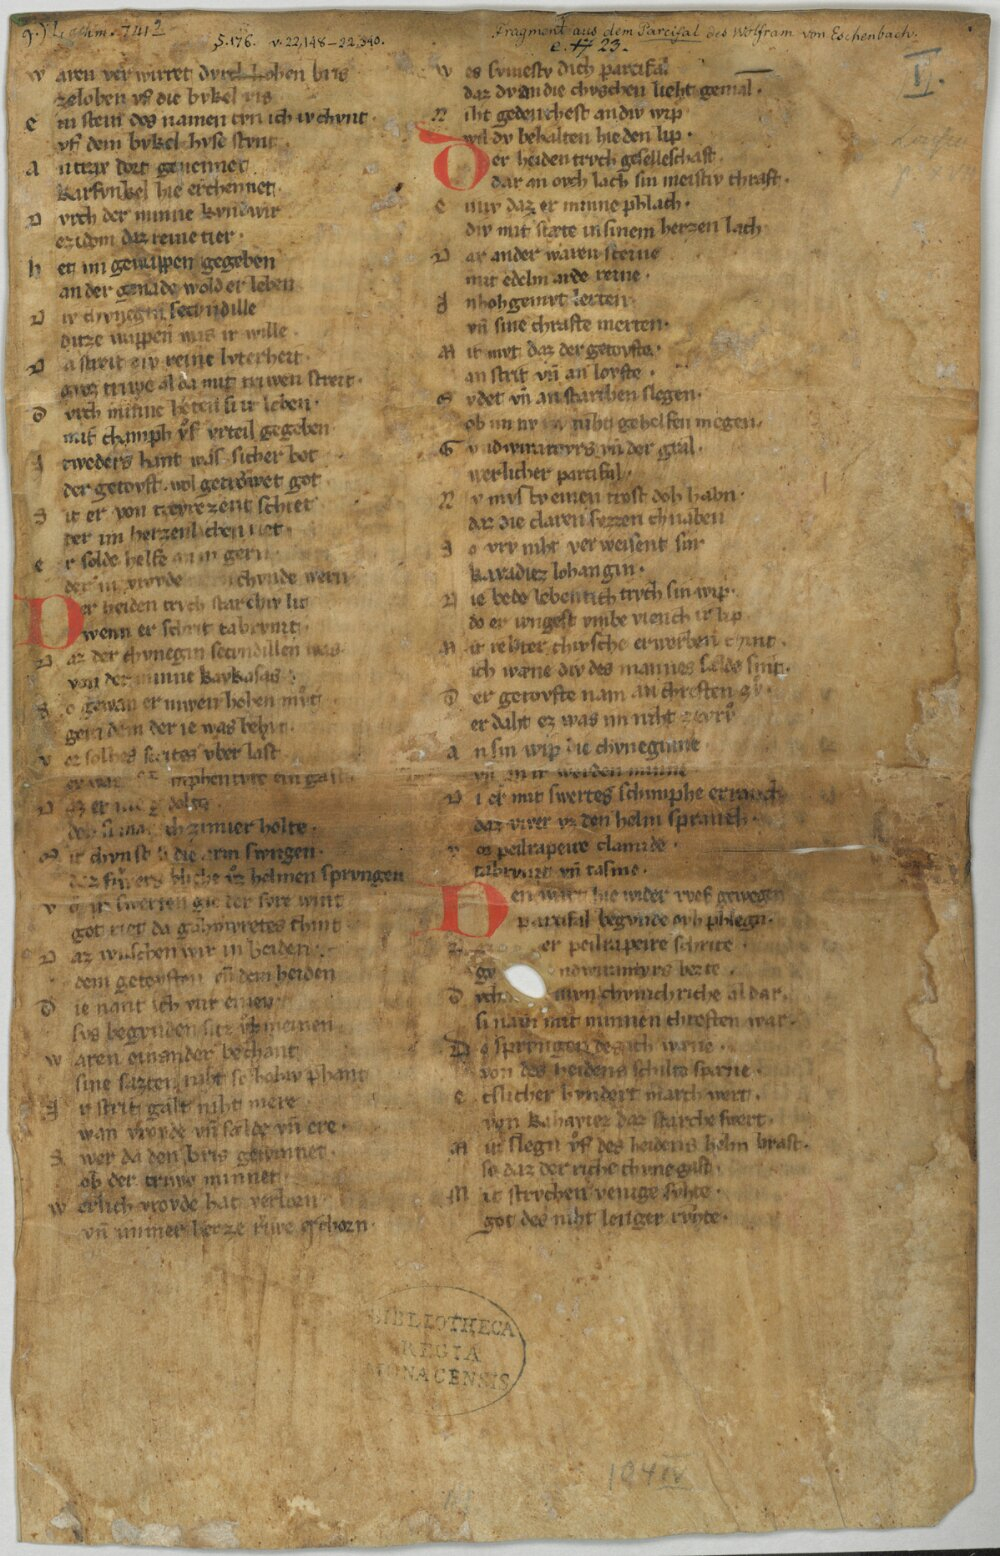 g.) Legshm. 7412
S. 176. v. 22,148–22,390.
Fragment aus dem Parcifal des Wolfram von Eschenbach.
c. 23.
II.
w aren verwirret dvrch hohen bris
ze loben vf die bvkel ris
e in stein des namen tvn ich iv chvnt
vf dem bvkel hvse stvnt
a ntrax dort genennet
Karfvnkel hie erchennet
D vrch der minne kvndwir
ezidem daz reine tier
h et im gewappen gegeben
an der genade wold er leben
D iv chvnegin secvndille
ditze wappen was ir wille
D a streit div reine lvterheit
groz triwe al da mit triwen streit
D vrch minne heten si ir leben
mit champh vf vrteil gegeben
 tweders hant was sicher bot
der getovft wol getrowet got
S it er von trevrezent schiet
der im herzenlichen riet
e r solde helfe an in gern
der in vrovde chvnde wern
Der heiden trvch starchiv lit
wenn er schrit tabrvnit
D az der chvnegin secvndillen was
von der mvnt kavkasas
S o gewan er niwen hohen mvt
gein dem der ie was behvt
v or solhes strites vber last
er was schvmphentivre ein gast
D az er nie gedolte
doh si manech zimier holte
M it chvnst si die arm swngen
daz fivers bliche vz helmen sprvngen
v on ir swerten gie der svre wint
got ner da gahmvretes chint
D az wnschen wir in beiden
dem getovften vn dem heiden
D ie nant ich vur einen
svs begvnden siz vf meinen
w aren ein ander bechant
sine sazten niht so hohiv phant
ir strit galt niht mere
wan vrovde vn sælde vn ere
S wer da den bris gewinnet
ob der triwe minnet
w erlich vrovde hat verlorn
vn immer herze riwe erchorn
w es svmestv dich parcifal
daz dv an die chvschen lieht gemal
N iht gedenchest an div wip
wil dv behalten hie den lip
Der heiden trvch geselleschaft
dar an ovch lach sin meistiv chraft
e iniv daz er minne phlach
div mit stæte in sinem herzen lach
D ar ander waren steine
mit edelm arde reine
I n hohgemvt lerten
vn sine chrafte merten
M it mvt daz der getovfte
an strit vn an lovfte
S vdet vn an starchen slegen
ob im nv niht gehelfen megen
G vndwiramvrs vn der gral
werlicher parcifal
N v mvstv einen trost doh habn
daz die claren svzzen chnaben
S o vrv niht verweisent sin
Kardeiz lohangrin
D ie bede lebentich trvch sin wip
do er ivngest vmbe viench ir lip
M it rehter chvsche erworben chint
ich wæne div des mannes sælde sint
D er getovfte nam an chreften zv
er daht ez was im niht ze vrv
a n sin wip die chvneginne
vn an ir werden minne
D i er mit swertes schimphe erranch
daz viver vz den helm spranch
v or peilrapeire clamide
tabrvnit vn tasme
Den wart hie wider rvef gewegen
parcifal begvnde ovh phlegn
er peilrapeire schrite
ndwiramvrs bezite
D vrch chvnichriche al dar
si nam mit minnen chreften war
D o sprvngen des ich wæne
von des heidens schilte spæne
e tslicher hvndert march wert
von Kahaviez daz starche swert
M it slegn vf des heidens helm brast
so daz der riche chvne gast
M it strvchen venige svhte
got des niht lenger rvhte
BIBLIOTHECA
REGIA
MONACENSIS
104 IV